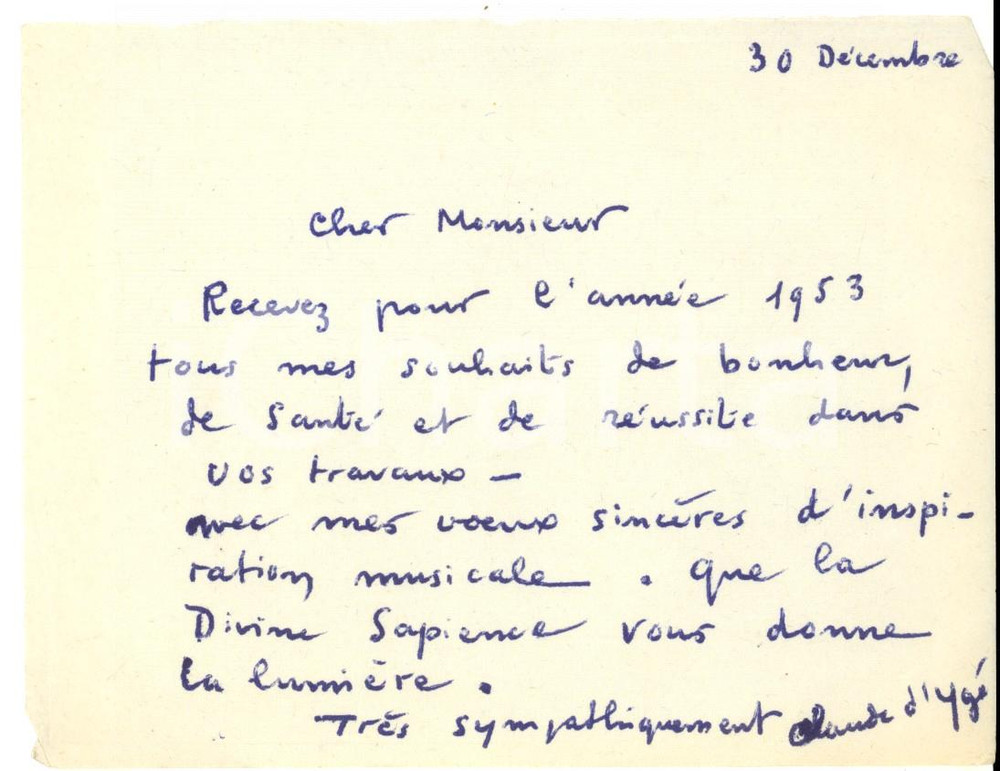 30 Décembre
Cher Monsieur
Recevez pour l'année 1953
tous mes souhaits de bonheur,
de Santé et de réussite dans
vos travaux —
avec mes voeux sincères d'inspi-
ration musicale. Que la
Divine Sapience vous donne
la lumière.
Très sympathiquement Claude d'Ygé